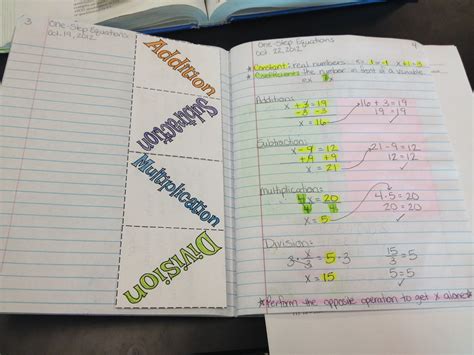 3
One-Step Equations
Oct. 19, 2012
Addition
Subtraction
Multiplication
Division
One-Step Equations
Oct. 22, 2012
4
*Constant: real numbers
*Coefficient: the number in front of a variable
Addition:
x + 3 = 19
-3 -3
x = 16
16 + 3 = 19
19 = 19
✓
Subtraction:
x - 9 = 12
+9 +9
x = 21
21 - 9 = 12
12 = 12
✓
Multiplication:
4x = 20
4 4
x = 5
4 · 5 = 20
20 = 20
✓
Division:
3 · x/3 = 5 · 3
x = 15
15/3 = 5
5 = 5
✓
*Perform the opposite operation to get x alone*